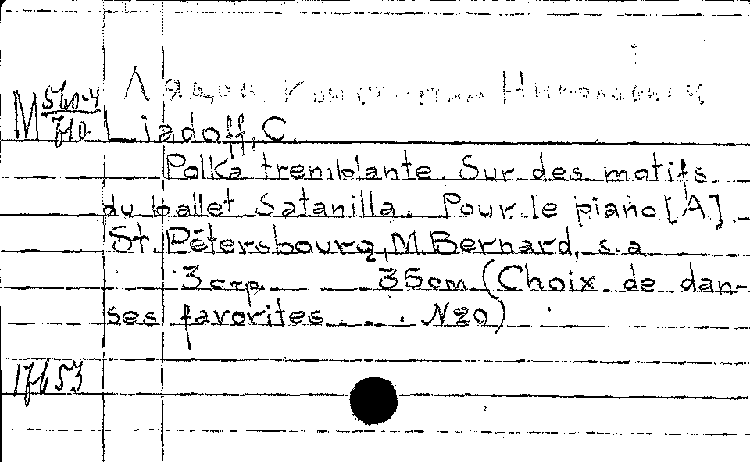 Лядов, Константин Николаевич
М 560-4/710 Liadoff, C.
Polka tremblante. Sur des motifs
du ballet Satanilla. Pour le piano [A]
St. Pétersbourg, M. Bernard, s.a.
3 стр. 35 cm (Choix de dan-
ses favorites... N20)
17653